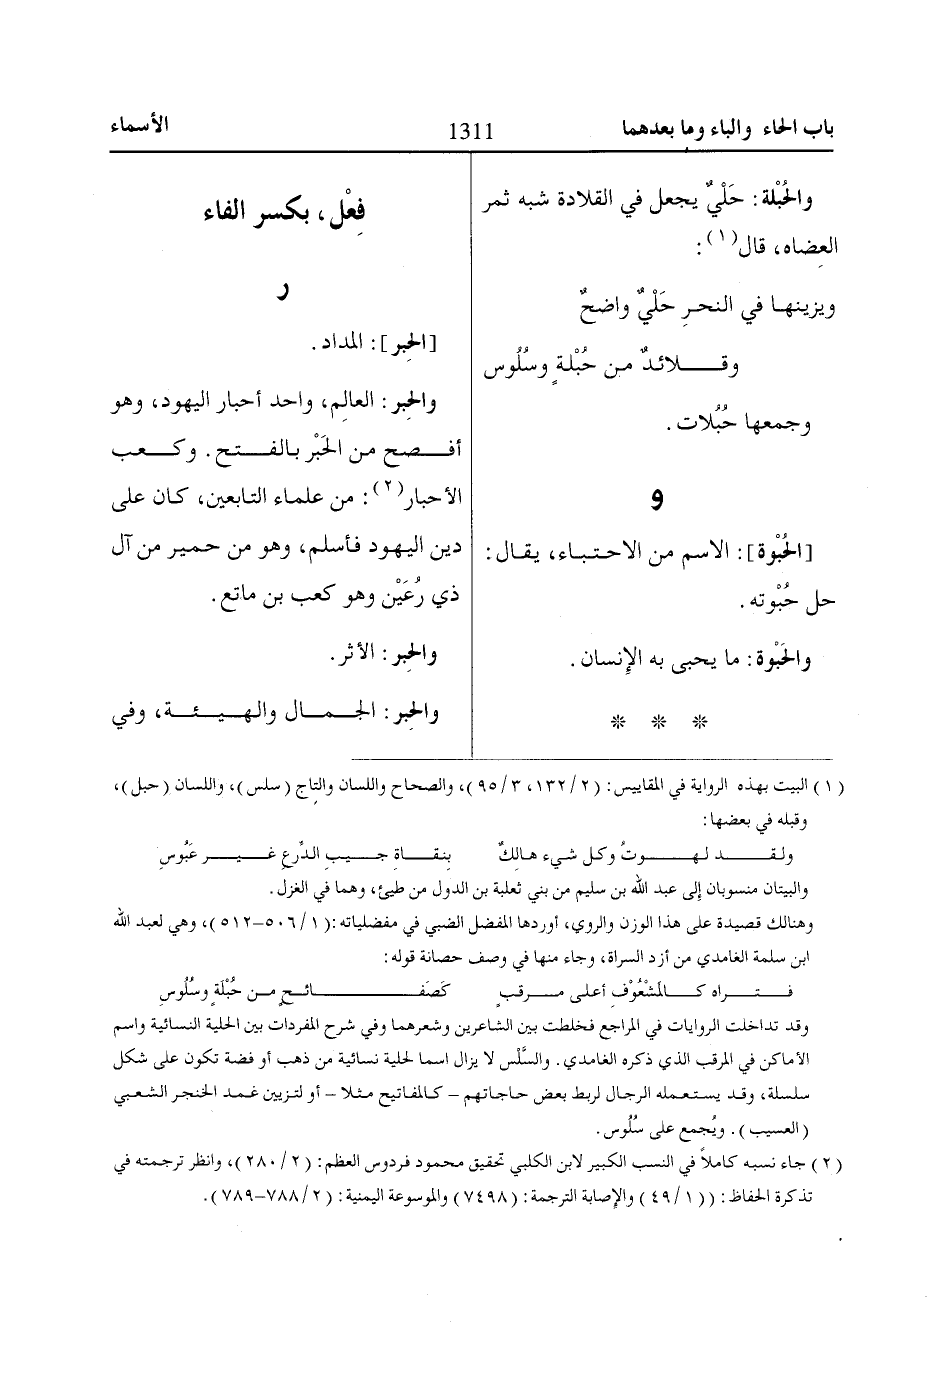 باب الحاء والباء وما بعدهما
1311
الأسماء
والحُبْلة: حَلْيٌ يجعل في القلادة شبه ثمر
العضاه، قال(١):
ويزينها في النحرِ حَلْيٌ واضحٌ
وقـــلائدٌ من حُبْلةٍ وسُلُوس
وجمعها حُبُلات.
و
[الحُبْوة]: الاسم من الاحتباء، يقال:
حل حُبْوته.
والحَبْوة: ما يحبى به الإنسان.
* * *
فِعْل، بكسر الفاء
ر
[الحِبر]: المداد.
والحِبر: العالم، واحد أحبار اليهود، وهو
أفـصح من الحَبْر بالفـتح. وكـعب
الأحبار(٢): من علماء التابعين، كان على
دين اليهود فأسلم، وهو من حمير من آل
ذي رُعَيْن وهو كعب بن ماتع.
والحِبر: الأثر.
والحِبر: الجـمـال والهـيـئـة، وفي
(١) البيت بهذه الرواية في المقاييس: (٢/ ١٣٢، ٣/ ٩٥)، والصحاح واللسان والتاج (سلس)، واللسان (حبل)،
وقبله في بعضها:
ولقـد لهـوتُ وكل شيء هالكٌ بنقـاةِ جـيبِ الدِّرعِ غـيـر عَبُوسِ
والبيتان منسوبان إلى عبد الله بن سليم من بني ثعلبة بن الدول من طيئ، وهما في الغزل.
وهنالك قصيدة على هذا الوزن والروي، أوردها المفضل الضبي في مفضلياته:(١/ ٥٠٦–٥١٢)، وهي لعبد الله
ابن سلمة الغامدي من أزد السراة، وجاء منها في وصف حصانة قوله:
فـتـراه كـالمَشْعُوْفِ أعلى مـرقبٍ كَصَفـائـحٍ مـن حُبْلَةٍ وسُلُوسِ
وقد تداخلت الروايات في المراجع فخلطت بين الشاعرين وشعرهما وفي شرح المفردات بين الحلية النسائية واسم
الأماكن في المرقب الذي ذكره الغامدي. والسَّلْس لا يزال اسما لحلية نسائية من ذهب أو فضة تكون على شكل
سلسلة، وقد يستعمله الرجال لربط بعض حاجاتهم – كالمفاتيح مثلا – أو لتزيين غمد الخنجر الشعبي
(العسيب). ويُجمع على سُلُوس.
(٢) جاء نسبه كاملاً في النسب الكبير لابن الكلبي تحقيق محمود فردوس العظم: (٢/ ٢٨٠)، وانظر ترجمته في
تذكرة الحفاظ: ((١/ ٤٩) والإصابة الترجمة: (٧٤٩٨) والموسوعة اليمنية: (٢/ ٧٨٨–٧٨٩).